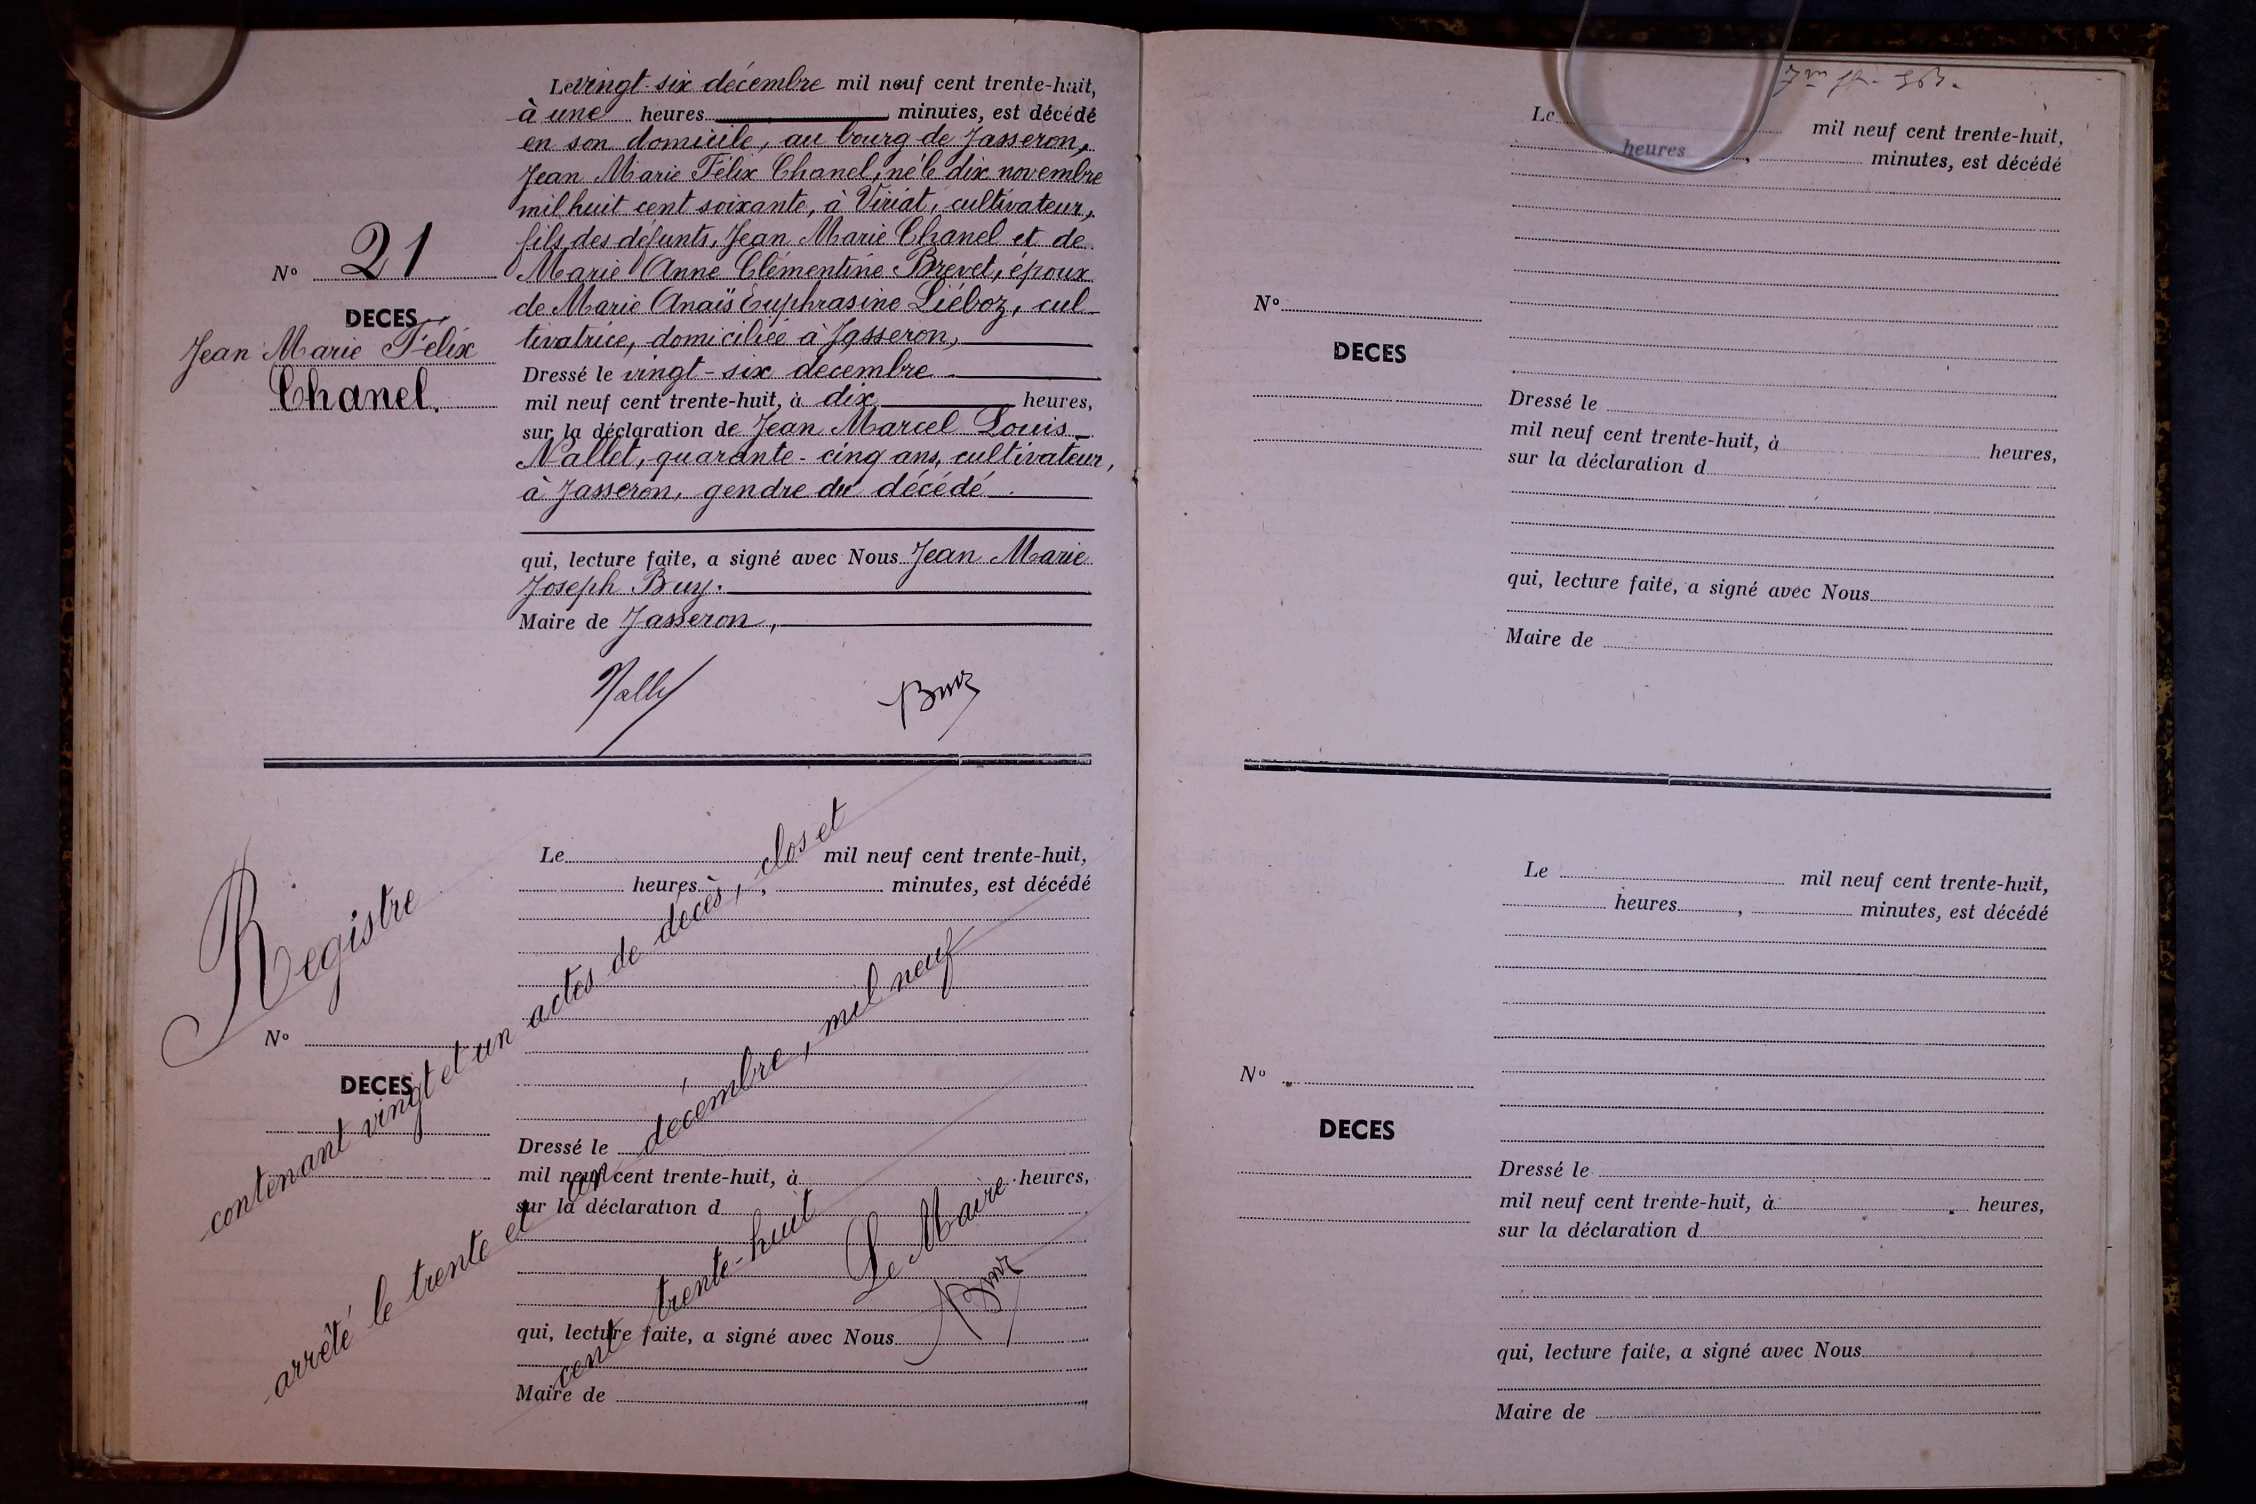 Le vingt-six décembre mil neuf cent trente-huit,
à une heures minutes, est décédé
en son domicile, au bourg de Jasseron,
Jean Marie Félix Chanel, né le dix novembre
mil huit cent soixante, à Viriat, cultivateur,
fils des défunts, Jean Marie Chanel et de
Marie Anne Clémentine Brevet, époux
de Marie Anaïs Euphrasine Liéboz, cul
tivatrice, domiciliée à Jasseron,
Dressé le vingt-six décembre
mil neuf cent trente-huit, à dix heures,
sur la déclaration de Jean Marcel Louis
Nallet, quarante-cinq ans, cultivateur,
à Jasseron, gendre du décédé.
qui, lecture faite, a signé avec Nous Jean Marie
Joseph Buy.
Maire de Jasseron,
N° 21
DECES
Jean Marie Félix
Chanel.
Le mil neuf cent trente-huit,
heures , minutes, est décédé
N°
DECES
Dressé le
mil neuf cent trente-huit, à heures,
sur la déclaration d
qui, lecture faite, a signé avec Nous
Maire de
Registre
contenant vingt et un actes de décès, clos et
arrêté le trente et un décembre, mil neuf
cent trente-huit
Le Maire
Le mil neuf cent trente-huit,
heures , minutes, est décédé
N°
DECES
Dressé le
mil neuf cent trente-huit, à heures,
sur la déclaration d
qui, lecture faite, a signé avec Nous
Maire de
Le mil neuf cent trente-huit,
heures , minutes, est décédé
N°
DECES
Dressé le
mil neuf cent trente-huit, à heures,
sur la déclaration d
qui, lecture faite, a signé avec Nous
Maire de